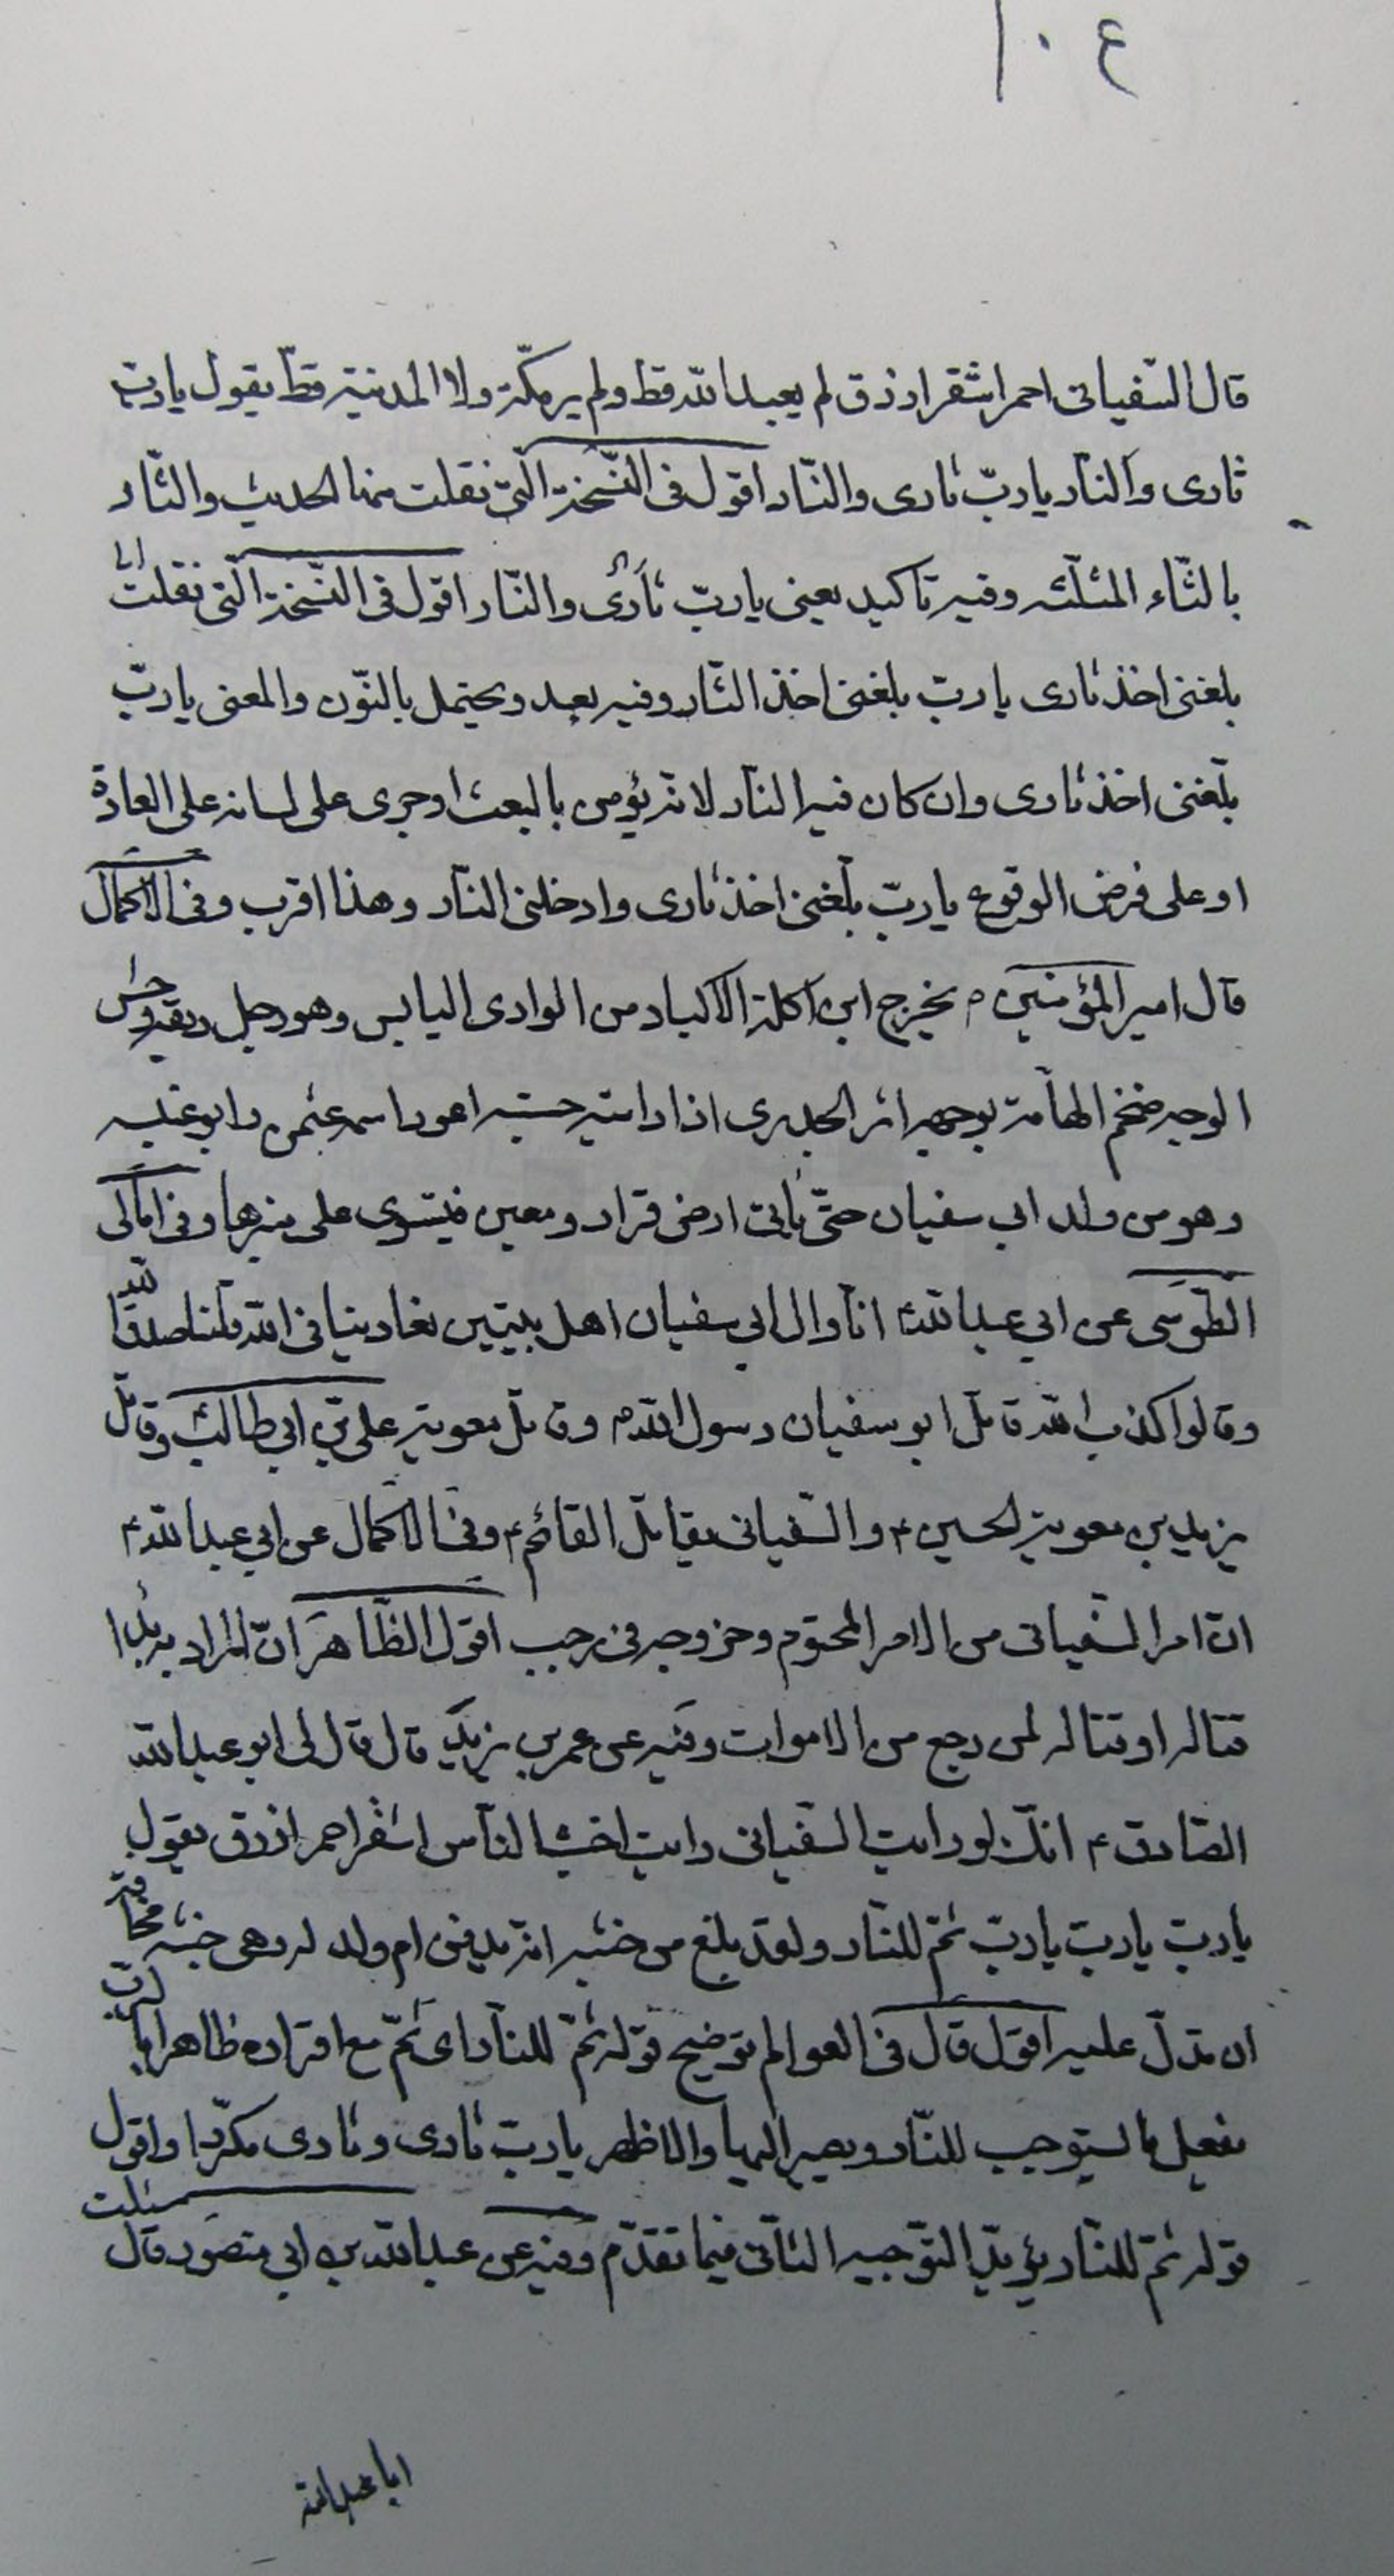 ١٠٤
قال السّفياني احمر اشقر ازرق لم يعبد الله قط ولم ير مكّة ولا المدينة قطّ يقول يا ربّ
ثارى والنّار يا ربّ ثارى والنّار اقول فى النّسخة الّتى نقلت منها الحديث والثّار
بالثّاء المثلّثه وفيه تاكيد يعنى يا ربّ ثارى والنّار اقول فى النّسخة الّتى نقلت
بلغنى اخذ ثارى يا ربّ بلغنى اخذ الثّار وفيه بعد ويحتمل بالنّون والمعنى يا ربّ
بلّغنى اخذ ثارى وان كان فيه النّار لانه يؤمن بالبعث او جرى على لسانه على العادة
او على فرض الوقوع يا ربّ بلّغنى اخذ ثارى وادخلنى النّار وهذا اقرب وفى الاكمال
قال امير المؤمنين ص يخرج ابن آكلة الاكباد من الوادى اليابس وهو رجل ربعة وحش
الوجه ضخم الهامّة بوجهه اثر الجدرى اذا رايته حسبته اعور اسمه عثمن وابو عنبسه
وهو من ولد ابى سفيان حتّى ياتى ارض قرار ومعين فيستوى على منبرها وفى امالى
الطّوسى عن ابي عبد الله ع انّا وال ابي سفيان اهل بيتين تعادينا فى الله قلنا صدق الله
وقالوا كذب الله قاتل ابو سفيان رسول الله ص وقاتل معوية علي بن ابي طالب وقاتل
يزيد بن معوية الحسين ع والسّفيانى يقاتل القائم ع وفى الاكمال عن ابي عبد الله ع
انّ امر السّفيانى من الامر المحتوم وخروجه فى رجب اقول الظّاهر انّ المراد به بدا
قتاله او قتاله لمن رجع من الاموات وفيه عن عمر بن يزيد قال قال لى ابو عبد الله
الصّادق ع انّك لو رايت السّفيانى رايت اخبث النّاس اشقر احمر ازرق يقول
يا ربّ يا ربّ يا ربّ ثمّ للنّار ولقد بلغ من خبثه انه يدفن ام ولد له وهى حيّة مخافة
ان تدلّ عليه اقول قال فى العوالم توضيح قوله ثمّ للنّار اى ثمّ مع اقراره ظاهرا بالرّبّ
يفعل ما يستوجب للنّار ويصير اليها والاظهر يا ربّ ثارى وثارى مكرّرا واقول
قوله ثمّ للنّار يؤيّد التّوجيه الثّانى فيما تقدّم وفيه عن عبد الله بن ابي منصور قال سئلت
ابا عبد الله